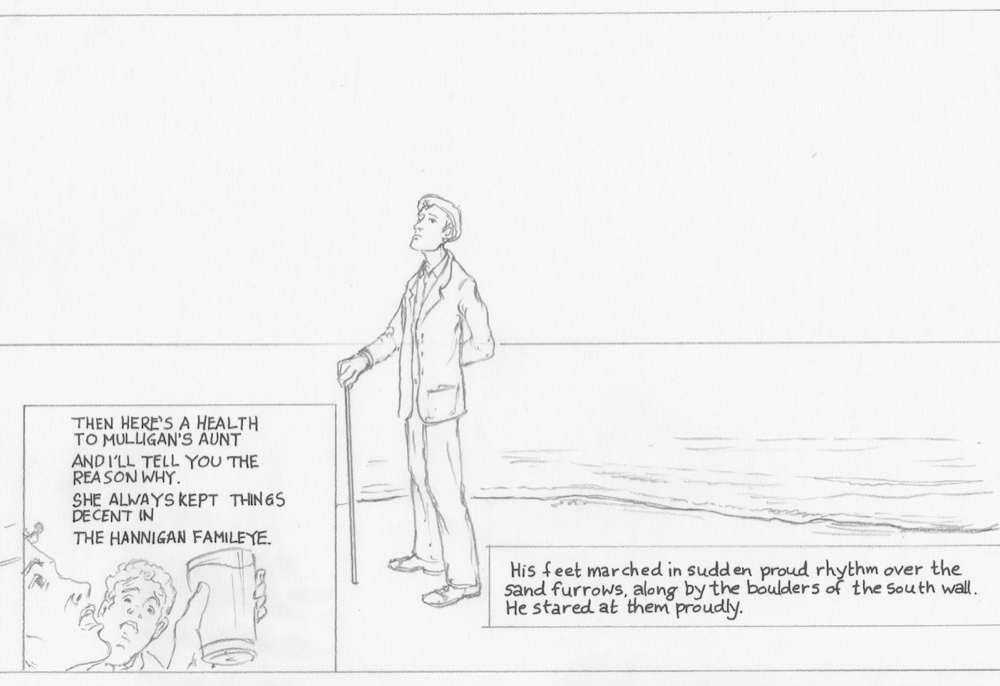 THEN HERE'S A HEALTH
TO MULLIGAN'S AUNT
AND I'LL TELL YOU THE
REASON WHY.
SHE ALWAYS KEPT THINGS
DECENT IN
THE HANNIGAN FAMILEYE.
His feet marched in sudden proud rhythm over the
sand furrows, along by the boulders of the south wall.
He stared at them proudly.